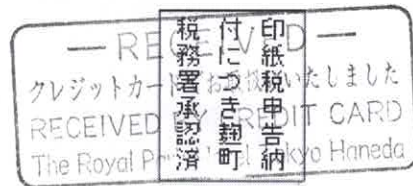 — RECEIVED —
クレジットカードお取扱いたしました
RECEIVED BY CREDIT CARD
The Royal Tokyo Haneda
印紙税申告納
付につき麹町
税務署承認済